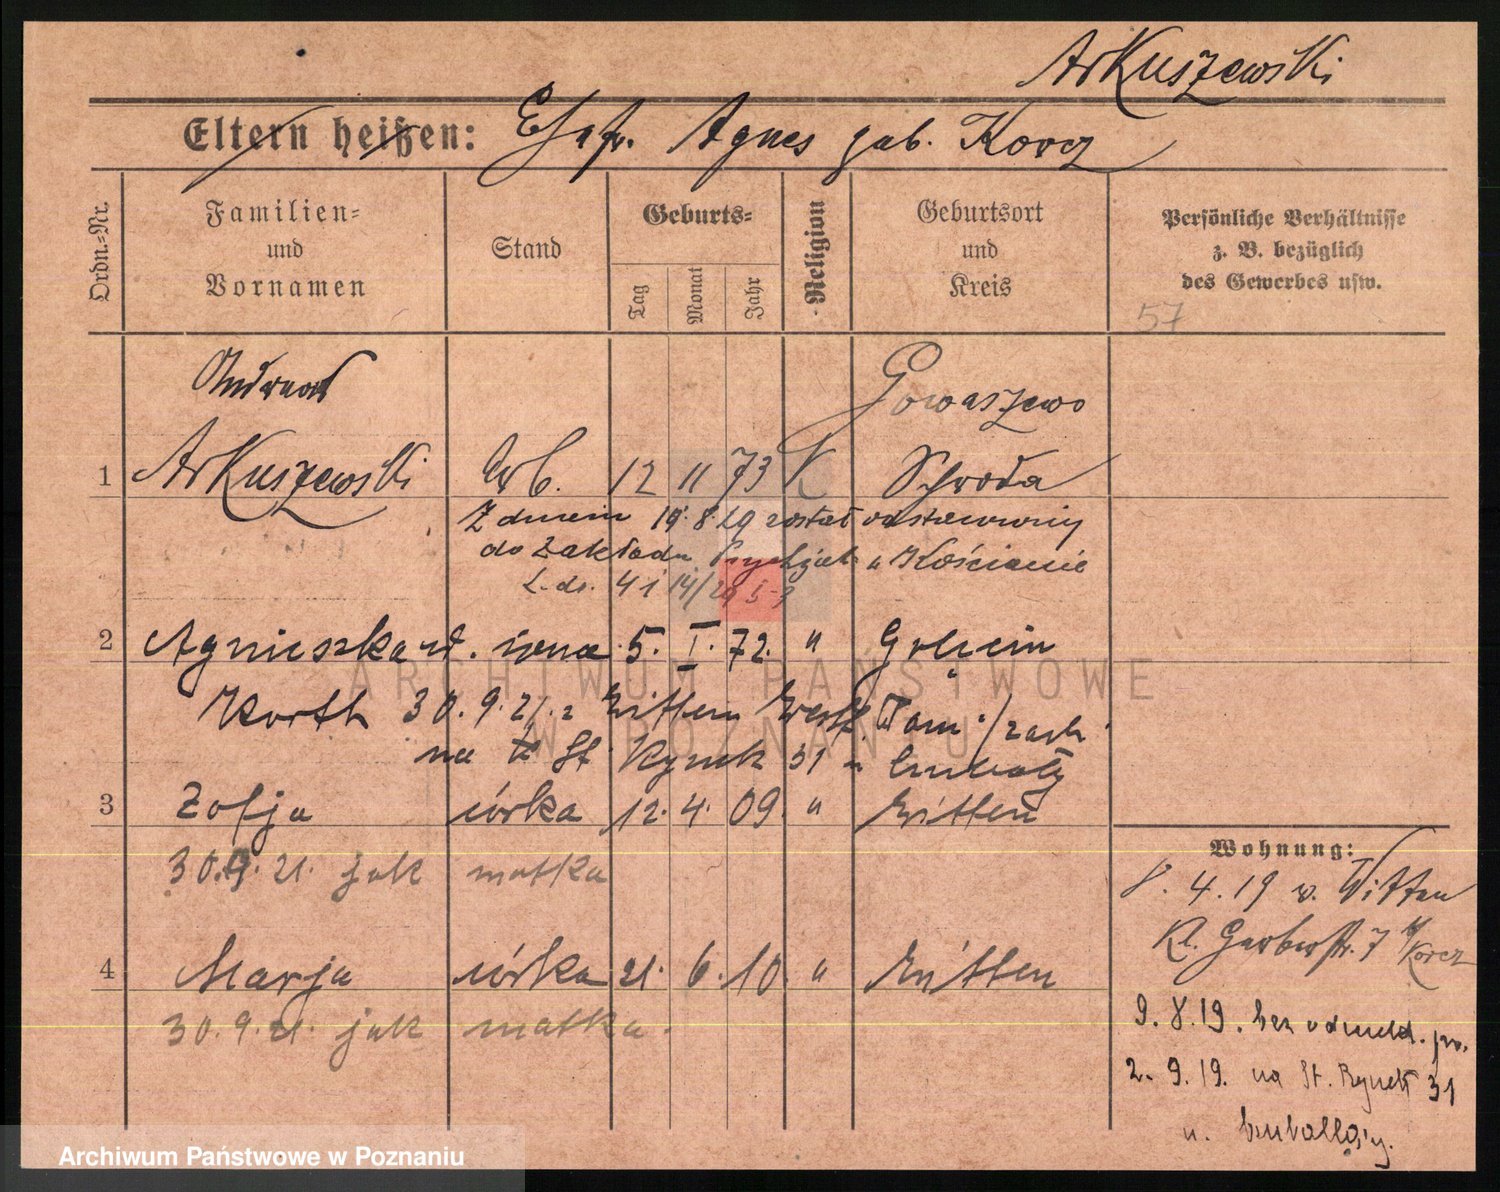 Arkuszewski
Eltern heißen: Ehefr. Agnes geb. Korcz
Ordn.-Nr.
Familien- und Vornamen
Stand
Geburts-
Tag
Monat
Jahr
Religion
Geburtsort und Kreis
Persönliche Verhältnisse
z. B. bezüglich
des Gewerbes usw.
57
Andreas Gowaszewo
1 Arkuszewski Arb. 12 11 73 K Schroda
Z dniem 19.8.29 został odstawiony
do Zakładu Psychjat. w Kościanie
L. dz. 41 14/29
2 Agnieszka żona 5. I. 72. " Golecin
Korth 30.9.21. z Witten Westf.
na St. Rynek 31
3 Zofja córka 12. 4. 09. " Witten
30.9.21. jak matka
4 Marja córka 21. 6. 10. " Witten
30.9.21. jak matka.
Wohnung:
8. 4. 19 v. Witten
Kl. Gerberstr. 7 b/ Korcz
9. 8. 19. bez odmeld. pr.
2. 9. 19. na St. Rynek 31
ARCHIWUM PAŃSTWOWE
W POZNANIU
Archiwum Państwowe w Poznaniu